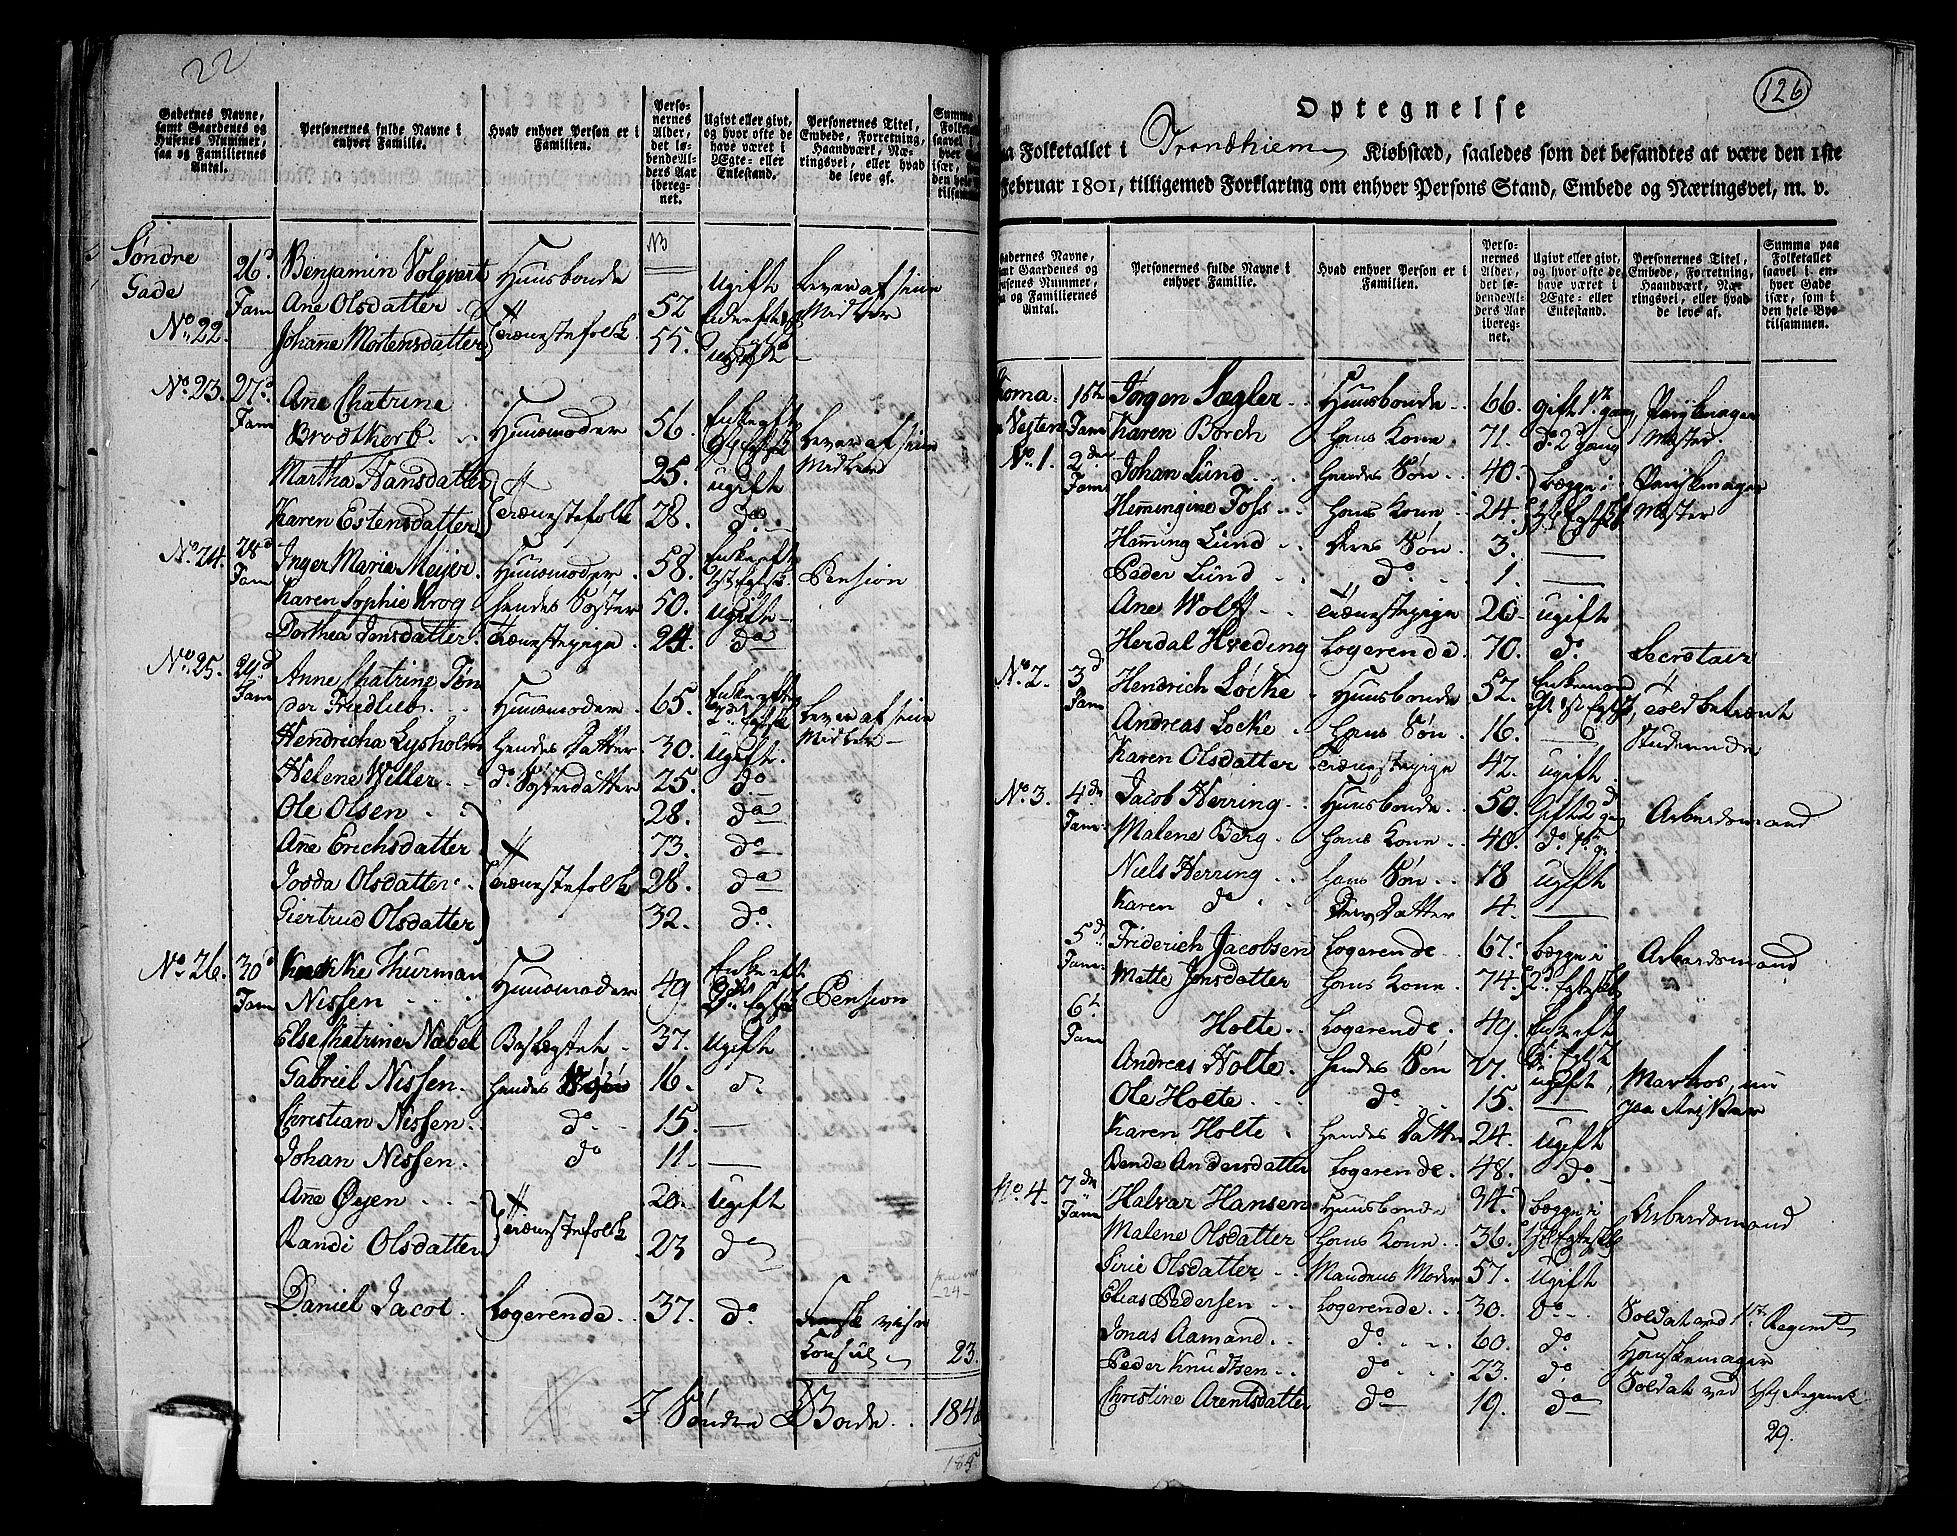 22
Gadernes Navne, samt Gaardenes og Husenes Nummer, saa og Familiernes Antal.
Personernes fulde Navne i enhver Familie.
Hvad enhver Person er i Familien.
Personernes Alder, det løbende Alders Aar iberegnet.
Ugivt eller givt, og hvor ofte de have været i Ægte- eller Enkestand.
Personernes Titel, Embede, Forretning, Haandværk, Næringsvei, eller hvad de leve af.
Søndre Gade No. 22. 26d Fam Benjamin Volqvart Huusbonde NB — Ugift Lever af sine Midler
Ane Olsdatter 52
Johanne Mortensdatter Tienestefolk 55. ugift
No. 23. 27d Fam Ane Chatrine Brodtkorb Huusmoder 56. Lever af sine Midler
Martha Hansdatter 25. ugift
Karen Estensdatter Tienestefolk 28. do
No. 24. 28d Fam Inger Maria Meijer Huusmoder 58. Pension
Karen Sophie Krog hendes Søster 50. Ugift
Dorthea Jonsdatter Tienestepige 24. do
No. 25. 29d Fam Anne Chatrine Von der Friedlieb Huusmoder 65. Lever af sine Midler
Hendricha Lysholm hendes Datter 30. Ugift.
Helene Weller do Søsterdatter 25. do
Ole Olsen 28. do
Ane Erichsdatter 73. do
Olsdatter Tienestefolk 28. do
Giertrud Olsdatter 32. do
No. 26. 30d Fam Thurman Nissen Huusmoder 49 Pension
Else Chatrine Nabel Beslægtet 37. Ugift
Gabriel Nissen. hendes Søn 16. do
Christian Nissen. do 15. —
Johan Nissen. do 11. —
Ane Øyen 20. Ugift
Randi Olsdatter Tienestefolk 23 do
Daniel Jacot Logerende 37. do Consul 23.
24
I Søndre 184
126
Optegnelse
Folketallet i Trondhiem Kiøbstæd, saaledes som det befandtes at være den 1ste
Februar 1801, tilligemed Forklaring om enhver Persons Stand, Embede og Næringsvei, m. v.
Personernes fulde Navne i enhver Familie.
Hvad enhver Person er i Familien.
Personernes Alder, det løbende Alders Aar iberegnet.
Ugivt eller givt, og hvor ofte de have været i Ægte- eller Enkestand.
Personernes Titel, Embede, Forretning, Haandværk, Næringsvei, eller hvad de leve af.
Summa paa Folketallet saavel i enhver Gade især, som i den hele Bye tilsammen.
No. 1. Fam Jørgen Sægler Huusbonde 66. gift 1te gang Mester.
Karen Borch hans Kone 71. do 2d Gang
2den Fam Johan Lund hendes Søn 40. begge i Mester
Hemmingine Foss hans Kone 24.
Hemming Lund deres Søn 3. —
Peder Lund do 1. —
Ane Wolff Tienestepige 20 ugift
Herdal Hveding Logerende 70. do Secretair
No. 2. 3d Fam Hendrich Løcke Huusbonde 52. Enkemand Toldbetient
Andreas Løcke hans Søn 16. — Studerende
Karen Olsdatter Tienestepige 42. ugift
No. 3. 4de Fam Jacob Herring Huusbonde 50. Gift 2d gg Arbeidsmand
Malene Berg hans Kone 40. do 1te g.
Niels Herring hans Søn 18 ugift
Karen do Deres Datter 4. —
5d Fam Friderich Jacobsen Logerende 67. begge i Arbeidsmand
Mette Jonsdatter hans Kone 74.
6t Fam Holte Logerende 49.
Andreas Holte hendes Søn 27. ugift Matros, nu
Ole Holte do 15. —
Karen Holte hendes Datter 24. ugift
Andersdatter Logerende 48. do
No. 4 7de Fam Halvar Hansen Huusbonde 34. begge i Arbeidsmand
Malene Olsdatter hans Kone 36.
Sirie Olsdatter Mandens Moder 57. Ugift
Elias Pedersen Logerende 30. do Soldat ved 1te Regimt
Jonas Aamand do 60. do Handskemager
Peder Knudtsen do 23. do Soldat ved
Christine Arentsdatter do 19. do
29.